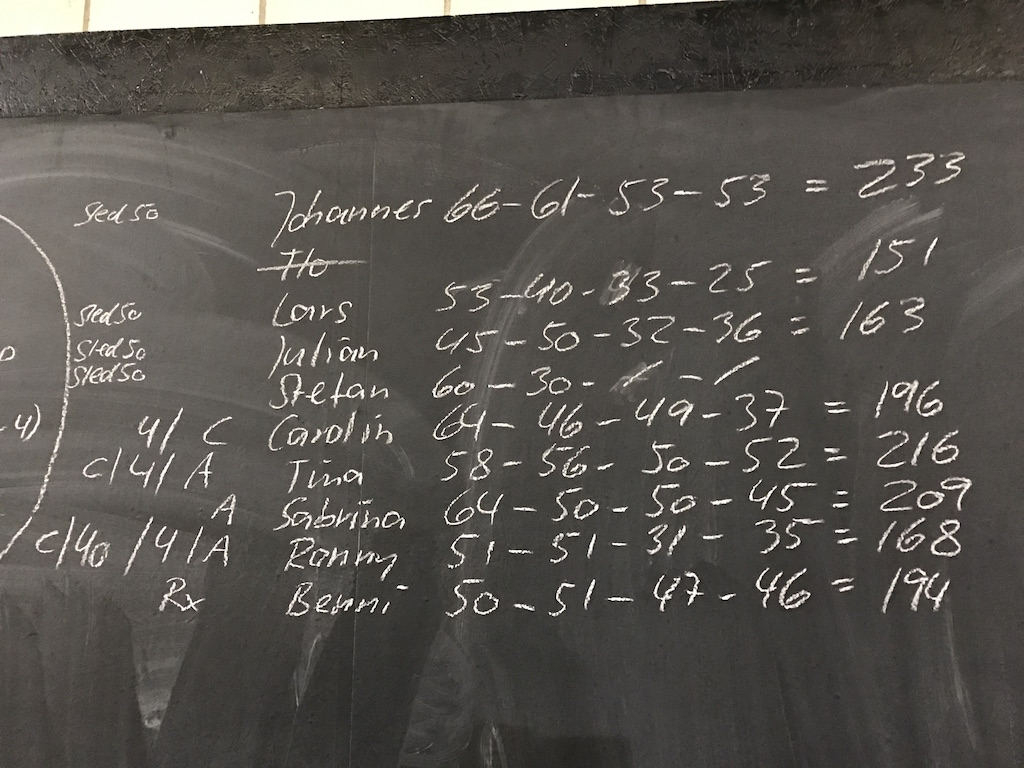 sled 50 Johannes 66 - 61 - 53 - 53 = 233
Flo
sled 50 Lars 53 - 40 - 33 - 25 = 151
sled 50 Julian 45 - 50 - 32 - 36 = 163
sled 50 Stefan 60 - 30 - / - /
4/ C Carolin 64 - 46 - 49 - 37 = 196
C/4/A Tina 58 - 56 - 50 - 52 = 216
A Sabrina 64 - 50 - 50 - 45 = 209
C/40/4/A Ronny 51 - 51 - 31 - 35 = 168
Rx Benni 50 - 51 - 47 - 46 = 194
4)